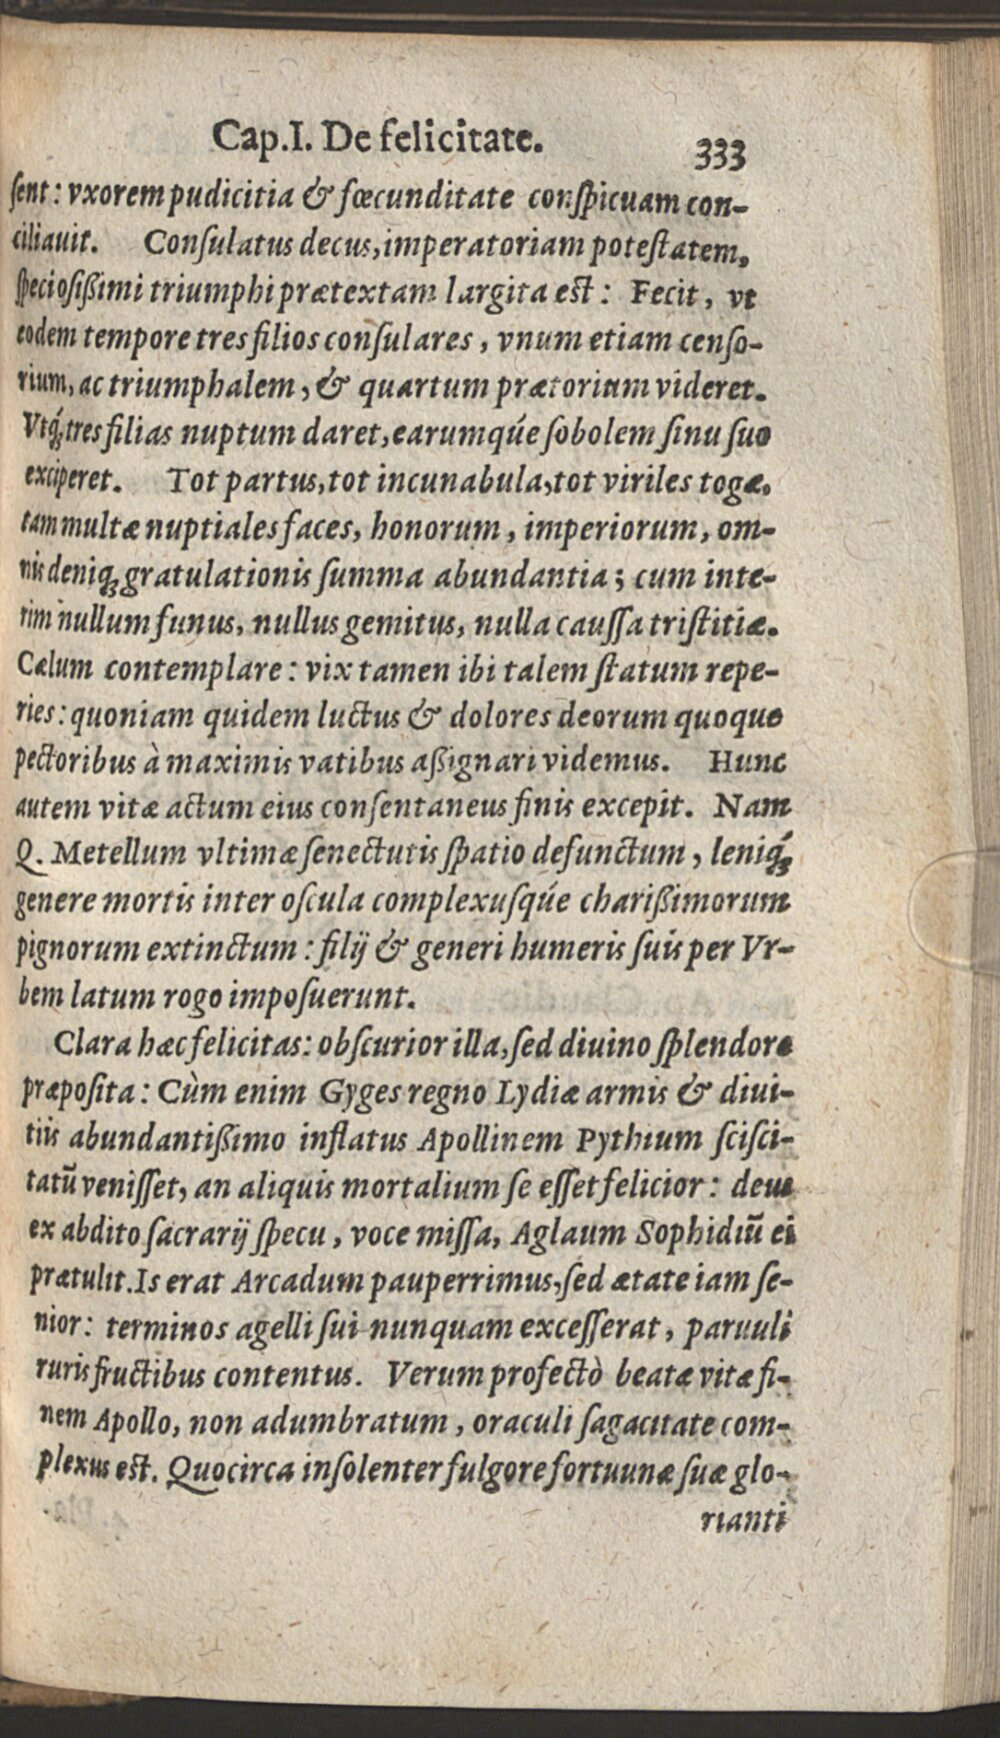 Cap.I. De felicitate.
333
ſent: vxorem pudicitia & fœcunditate conſpicuam con-
ciliauit. Conſulatus decus, imperatoriam poteſtatem,
ſpecioſißimi triumphi prætextam largita eſt: Fecit, vt
eodem tempore tres filios conſulares, vnum etiam cenſo-
rium, ac triumphalem, & quartum prætorium videret.
Vtq́; tres filias nuptum daret, earumqúe ſobolem ſinu ſuo
exciperet. Tot partus, tot incunabula, tot viriles togæ,
tam multæ nuptiales faces, honorum, imperiorum, om-
nis deniq; gratulationis ſumma abundantia; cum inte-
rim nullum funus, nullus gemitus, nulla cauſſa triſtitiæ.
Cælum contemplare: vix tamen ibi talem ſtatum repe-
ries: quoniam quidem luctus & dolores deorum quoque
pectoribus à maximis vatibus aßignari videmus. Hunc
autem vitæ actum eius conſentaneus finis excepit. Nam
Q. Metellum vltimæ ſenectutis ſpatio defunctum, leniq́;
genere mortis inter oſcula complexuſqúe charißimorum
pignorum extinctum: filij & generi humeris ſuis per Vr-
bem latum rogo impoſuerunt.
Clara hæc felicitas: obſcurior illa, ſed diuino ſplendore
præpoſita: Cùm enim Gyges regno Lydiæ armis & diui-
tiis abundantißimo inflatus Apollinem Pythium ſciſci-
tatū veniſſet, an aliquis mortalium ſe eſſet felicior: deus
ex abdito ſacrarij ſpecu, voce miſſa, Aglaum Sophidiū ei
prætulit. Is erat Arcadum pauperrimus, ſed ætate iam ſe-
nior: terminos agelli ſui nunquam exceſſerat, paruuli
ruris fructibus contentus. Verum profectò beatæ vitæ fi-
nem Apollo, non adumbratum, oraculi ſagacitate com-
plexus eſt. Quocirca inſolenter fulgore fortuunæ ſuæ glo-
rianti